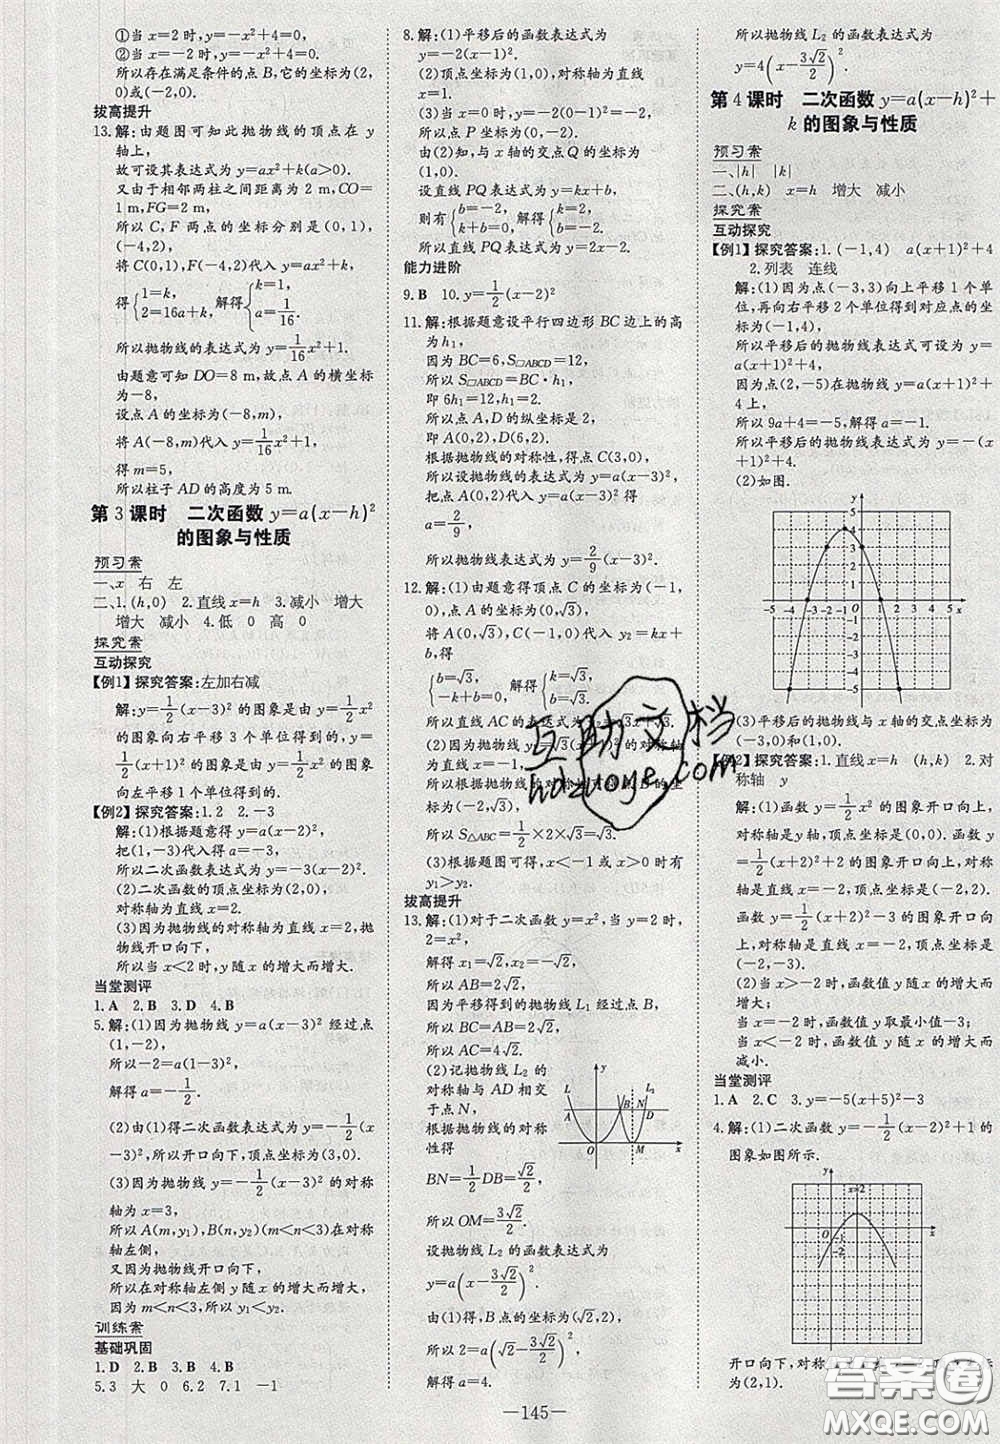 ①当 x=2 时,y=-x²+4=0;
②当 x=-2 时,y=-x²+4=0.
所以存在满足条件的点 B,它的坐标为(2,
0)或(-2,0).
拔高提升
13.解:由题图可知此抛物线的顶点在 y
轴上,
故可设其表达式为 y=ax²+k(a>0).
又由于相邻两柱之间距离为 2 m,CO=
1 m,FG=2 m,
所以 C,F 两点的坐标分别是(0,1),
(-4,2),
将 C(0,1),F(-4,2)代入 y=ax²+k,
得{1=k, 2=16a+k, 解得{k=1, a=1/16.
所以抛物线的表达式为 y=1/16x²+1.
由题意可知 DO=8 m,故点 A 的横坐标
为-8,
设点 A 的坐标为(-8,m),
将 A(-8,m)代入 y=1/16x²+1,
得 m=5,
所以柱子 AD 的高度为 5 m.
第 3 课时 二次函数 y=a(x-h)²
的图象与性质
预习案
一、x 右 左
二、1.(h,0) 2.直线 x=h 3.减小 增大
增大 减小 4.低 0 高 0
探究案
互动探究
【例1】探究答案:左加右减
解:y=1/2(x-3)²的图象是由 y=1/2x²
的图象向右平移 3 个单位得到的,
y=1/2(x+1)²的图象是由 y=1/2x²的图象
向左平移 1 个单位得到的.
【例2】探究答案:1.2 2.-3
解:(1)根据题意得 y=a(x-2)²,
把(1,-3)代入得 a=-3,
所以二次函数表达式为 y=-3(x-2)².
(2)二次函数的顶点坐标为(2,0),
对称轴为直线 x=2.
(3)因为抛物线的对称轴为直线 x=2,
抛物线开口向下,
所以当 x<2 时,y 随 x 的增大而增大.
当堂测评
1.A 2.B 3.D 4.B
5.解:(1)因为抛物线 y=a(x-3)²经过点
(1,-2),
所以-2=a(1-3)²,
解得 a=-1/2.
(2)由(1)得二次函数表达式为 y=-1/2(x
-3)²,所以开口向下,顶点坐标为(3,0).
(3)因为抛物线 y=-1/2(x-3)²的对称
轴为 x=3,
所以 A(m,y₁),B(n,y₂)(m<n<3)在对称
轴左侧,
又因为抛物线开口向下,
所以在对称轴左侧 y 随 x 的增大而增大,
因为 m<n<3,所以 y₁<y₂.
训练案
基础巩固
1.D 2.B 3.B 4.B
5.3 大 0 6.2 7.1 -1
8.解:(1)平移后的函数表达式为
y=-2(x-1)².
(2)顶点坐标为(1,0),对称轴为直线
x=1.
(3)当 x=0 时,y=-2(0-1)²=-2,
所以点 P 坐标为(0,-2).
由(2)知,与 x 轴的交点 Q 的坐标为
(1,0).
设直线 PQ 表达式为 y=kx+b,
则有{b=-2, k+b=0; 解得{k=2, b=-2.
所以直线 PQ 表达式为 y=2x-2.
能力进阶
9.B 10.y=1/2(x-2)²
11.解:根据题意设平行四边形 BC 边上的高
为 h₁,
因为 BC=6,S□ABCD=12,
所以 S□ABCD=BC·h₁,
即 6h₁=12,解得 h₁=2,
所以点 A,D 的纵坐标是 2,
即 A(0,2),D(6,2).
根据抛物线的对称性,得点 C(3,0),
所以设抛物线的表达式为 y=a(x-3)²,
把点 A(0,2)代入得
a=2/9,
所以抛物线表达式为 y=2/9(x-3)².
12.解:(1)由题意得顶点 C 的坐标为(-1,
0),点 A 的坐标为(0,√3),
将 A(0,√3),C(-1,0)代入 y₂=kx+
b,得
{b=√3, -k+b=0, 解得{k=√3, b=√3.
所以直线 AC 的表达式为 y₂=√3x+√3.
(2)因为抛物线 y₁=√3(x+1)²的对称轴
为直线 x=-1,A(0,√3),
所以点 A 关于抛物线的对称轴对称点 B
坐标为(-2,√3),AB=2,
所以 S△ABC=1/2×2×√3=√3.
(3)根据题图可得,x<-1 或 x>0 时有
y₁>y₂.
拔高提升
13.解:(1)对于二次函数 y=x²,当 y=2 时,
2=x²,
解得 x₁=√2,x₂=-√2,
所以 AB=2√2.
因为平移得到的抛物线 L₁ 经过点 B,
所以 BC=AB=2√2,
所以 AC=4√2.
(2)记抛物线 L₂ 的
对称轴与 AD 相交
于点 N,
根据抛物线的对称
性得
BN=1/2DB=√2/2,
所以 OM=3√2/2.
设抛物线 L₂ 的函数表达式为
y=a(x-3√2/2)².
由(1)得,B 点的坐标为(√2,2),
所以 2=a(√2-3√2/2)²,
解得 a=4.
L y L₃
A B N D
O M x
所以抛物线 L₂ 的函数表达式为
y=4(x-3√2/2)².
第 4 课时 二次函数 y=a(x-h)²+
k 的图象与性质
预习案
一、|h| |k|
二、(h,k) x=h 增大 减小
探究案
互动探究
【例1】探究答案:1.(-1,4) a(x+1)²+4
2.列表 连线
解:(1)因为点(-3,3)向上平移 1 个单
位,再向右平移 2 个单位得到对应点的坐
标为(-1,4),
所以平移后的抛物线的表达式可设为 y=
a(x+1)²+4,
因为点(2,-5)在抛物线 y=a(x+1)²+
4 上,
所以 9a+4=-5,解得 a=-1,
所以平移后的抛物线表达式为 y=-(x
+1)²+4.
(2)如图.
y
5 4 3 2 1
-5 -4 -3 -2 -1 O 1 2 3 4 5 x
-1 -2 -3 -4 -5
(3)平移后的抛物线与 x 轴的交点坐标为
(-3,0)和(1,0).
【例2】探究答案:1.直线 x=h (h,k) 2.对
称轴 y
解:(1)函数 y=1/2x²的图象开口向上,
对称轴是y轴,顶点坐标是(0,0);函数 y
=1/2(x+2)²+2 的图象开口向上,对称
轴是直线 x=-2,顶点坐标是(-2,2).
函数 y=1/2(x+2)²-3 的图象开口向
上,对称轴是直线 x=-2,顶点坐标是
(-2,-3).
(2)当 x>-2 时,函数值 y 随 x 的增大而
增大;
当 x=-2 时,函数值 y 取最小值-3;
当 x<-2 时,函数值 y 随 x 的增大而
减小.
当堂测评
1.A 2.C 3.y=-5(x+5)²-3
4.解:(1)二次函数 y=-1/2(x-2)²+1 的
图象如图所示.
y x=2
O 1 x
-2
开口向下,对称
为(2,1).
—145—
互助文档
hdzuoye.com
答案圈
MXQE.COM